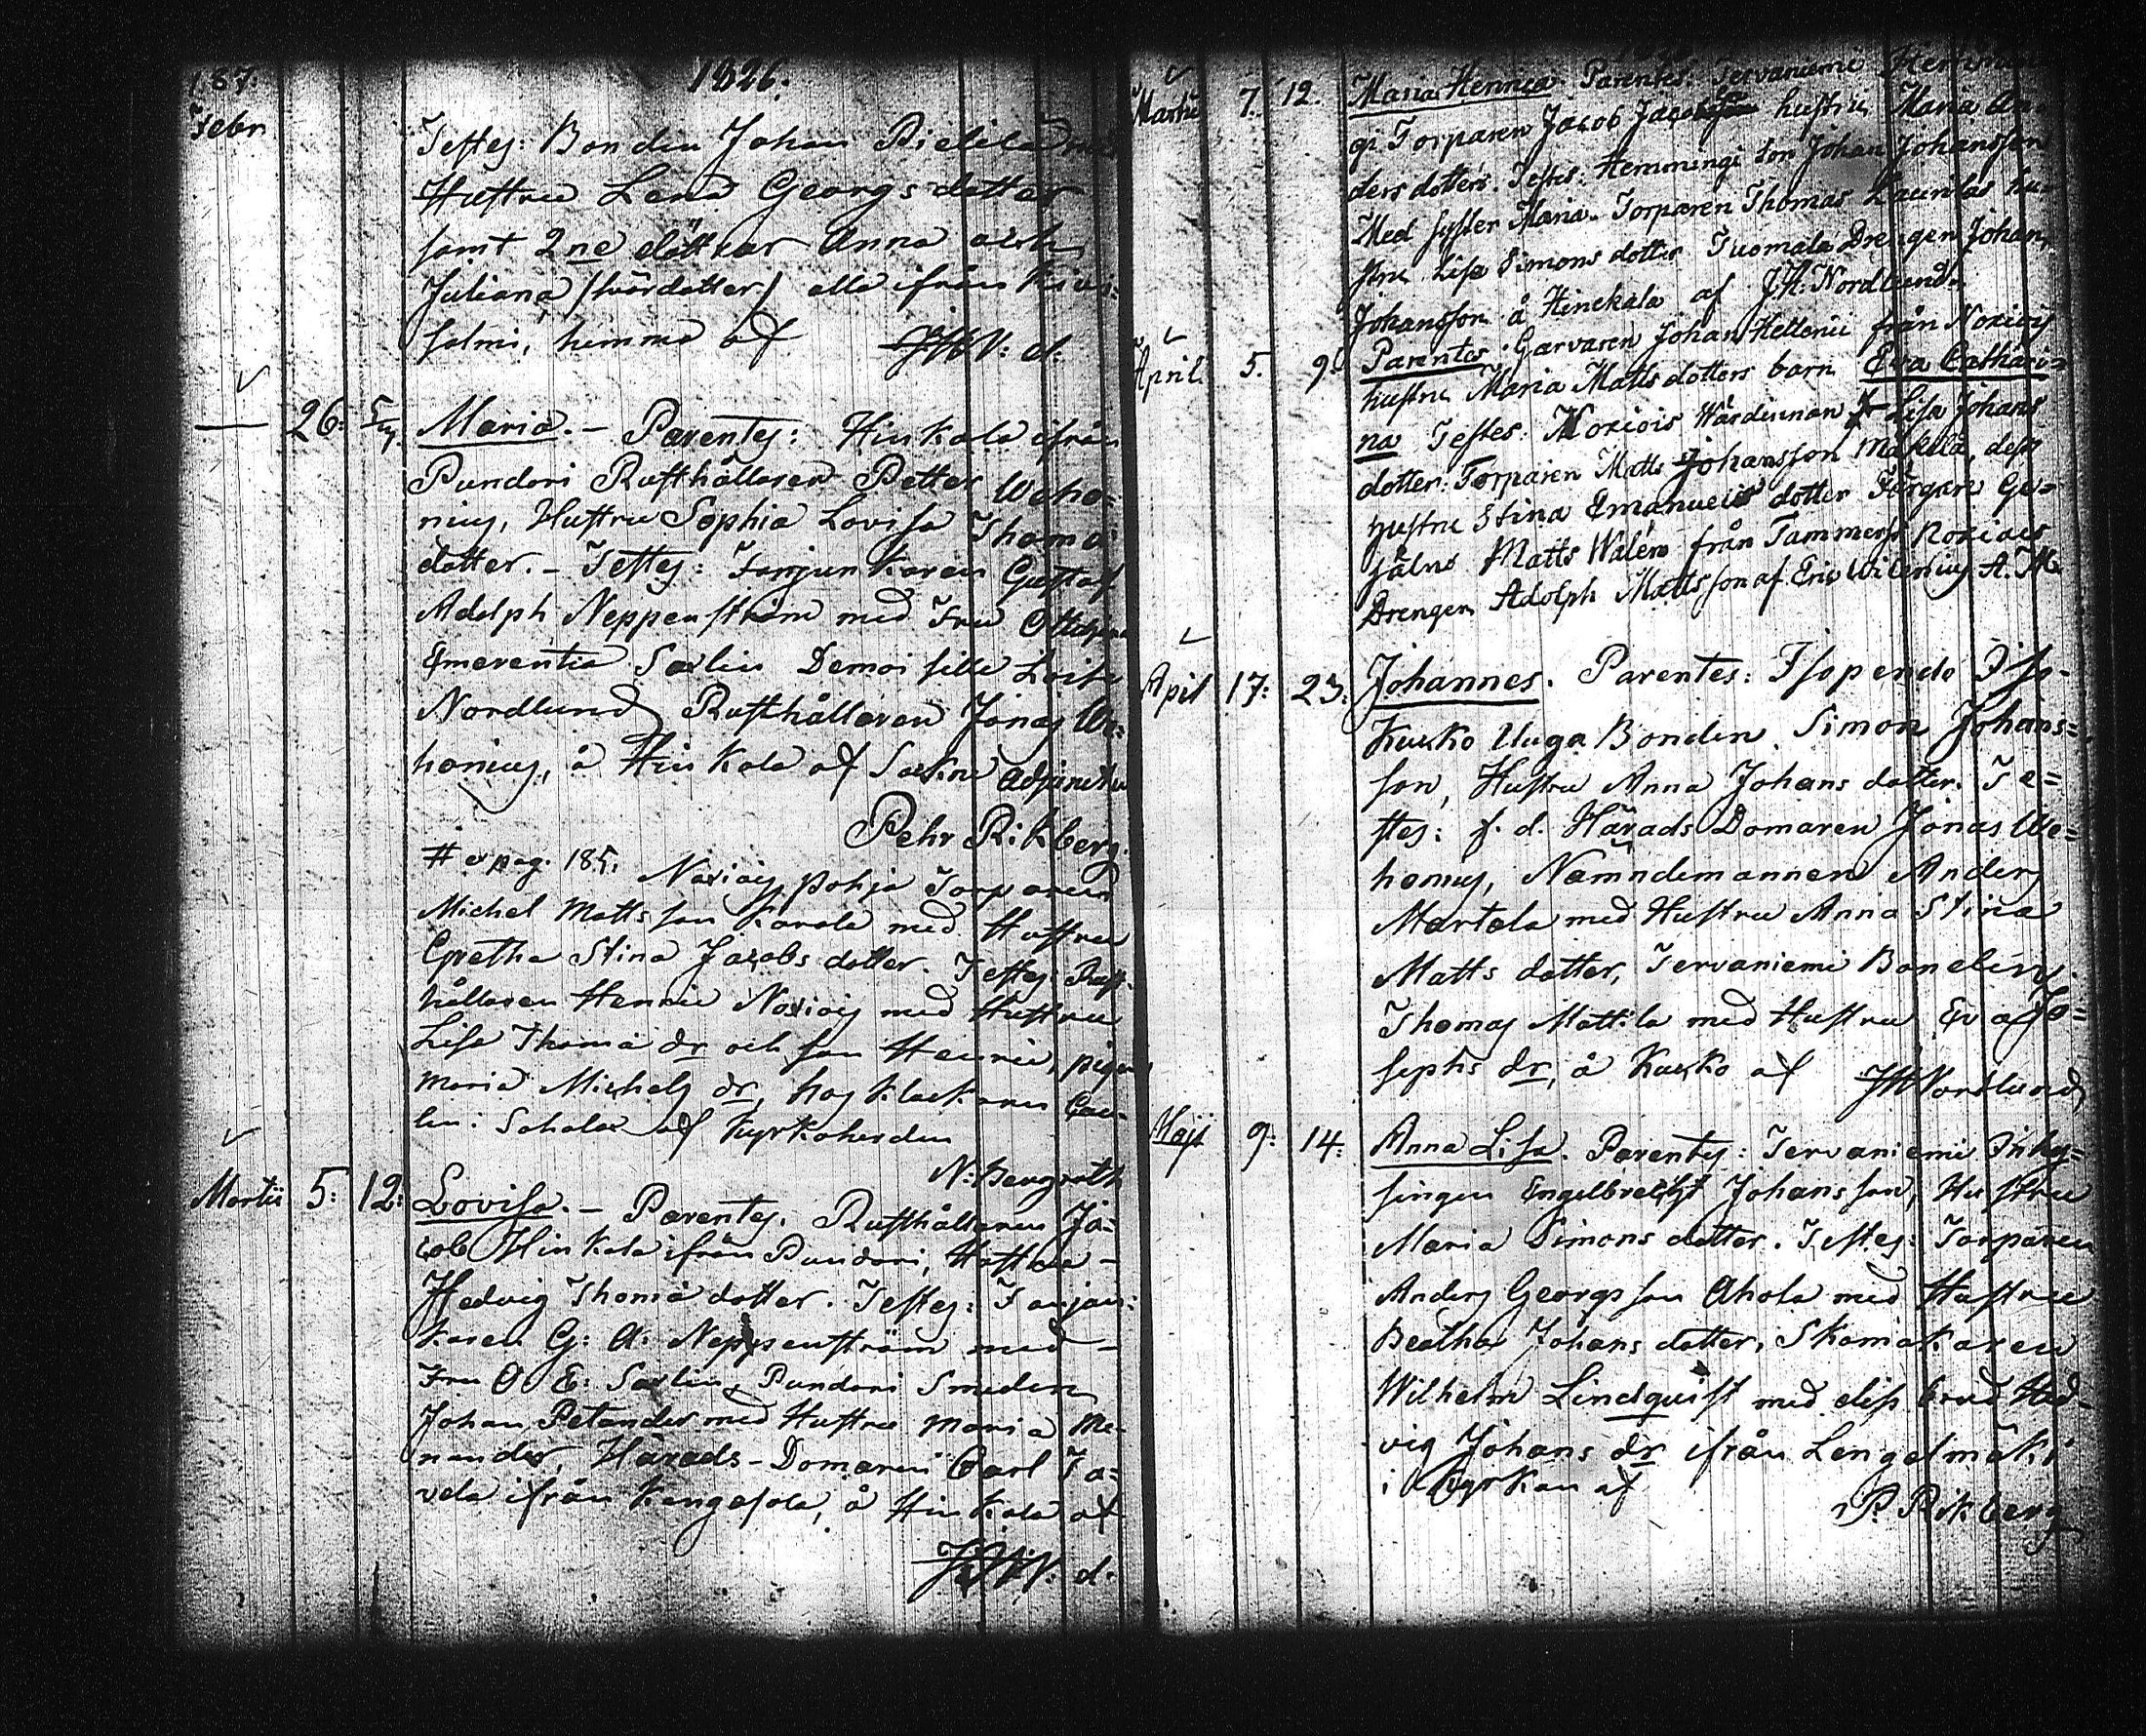 187.
1826.
Febr
Testes: Bonden Johan
Hustru Lena Georgs dotter
samt 2ne döttrar Anna och
Juliana /svärdotter/ alla ifrån
salmi, hemma af JHN: d.
26: Maria. – Parentes: Hinkala ifrån
Pundari Rusthållaren Petter Weho=
nius, Hustru Sophia Lovisa Thomæ
dotter. – Testes: Fanjunkaren Gustaf
Adolph Neppenström med Fru
Emerentia Saxlin Demoiselle Lovisa
Nordlund Rusthållaren Jonas We=
honius, å Hinkala af Sockne Adjuncten
Pehr Rikberg.
# v. pag. 185. Noxiois pohja Torparen
Michel Matts son Karola med Hustru
Gretha Stina Jacobs dotter. Testes: Rust
hållaren Henric Noxiois med Hustru
Lisa Thomæ dr och son Henric, pigan
Maria Michels dr, hos Klockaren
Schalar af Kyrkoherden
N: Bergroth
Martii 5: 12: Lovisa. – Parentes. Rusthållaren Ja=
cob Hinkala ifrån Pundari, Hustru –
Hedvig Thomæ dotter. Testes: Fanjun=
karen G: A: Neppenström med –
Fru O E: Saxlin, Pundari Smeden
Johan Petander med Hustru Maria Me=
nander, Härads-Domaren Carl Ta=
vela ifrån Kangasala, å Hinkala af
JHN: d.
Martii 7. 12. Maria Henrica Parentes: Tervaniemi
gi Torparen Jacob Jacobsson hustru Maria An=
ders dotters. Testes: Hemmingi son Johan Johansson
Med syster Maria. Torparen Thomas Launilas hu=
stru Lisa Simons dotter Tuomala Drengen Johan
Johansson å Hinckala af J.H: Nordlund.
April 5. 9. Parentes. Garvaren Johan Hellenii från Noxiois
hustru Maria Matts dotters barn Eva Cathari=
na Testes: Noxiois Wärdinnan Lisa Johans
dotter. Torparen Matts Johansson Mäkelä, dess
Hustru Stina Emanuels dotter Färgare Ge=
sälns Matts Walén från Tammerfs Noxiois
Drengen Adolph Matts son af Eric Wilenius A. M.
April 17: 23: Johannes. Parentes: Isopendo Iso-
Kurko Unga Bonden Simon Johans=
son, Hustru Anna Johans dotter. Te=
stes: f. d. Härads Domaren Jonas We=
honius, Nämndemannen Anders
Martola med Hustru Anna Stina
Matts dotter, Tervaniemi Bonden
Thomas Mattila med Hustru Eva Jo=
sephs dr, å Kurko af JHNordlund
Maji 9: 14: Anna Lisa. Parentes: Tervaniemi Inhy=
singen Engelbrecht Johansson, Hustru
Maria Simons dotter. Testes: Torparen
Anders Georgs son Ahola med Hustru
Beatha Johans dotter, Skomakaren
Wilhelm Lindquist med dess brud Hed-
vig Johans dr ifrån Lengelmäki
i Kyrkan af
P. Rikberg